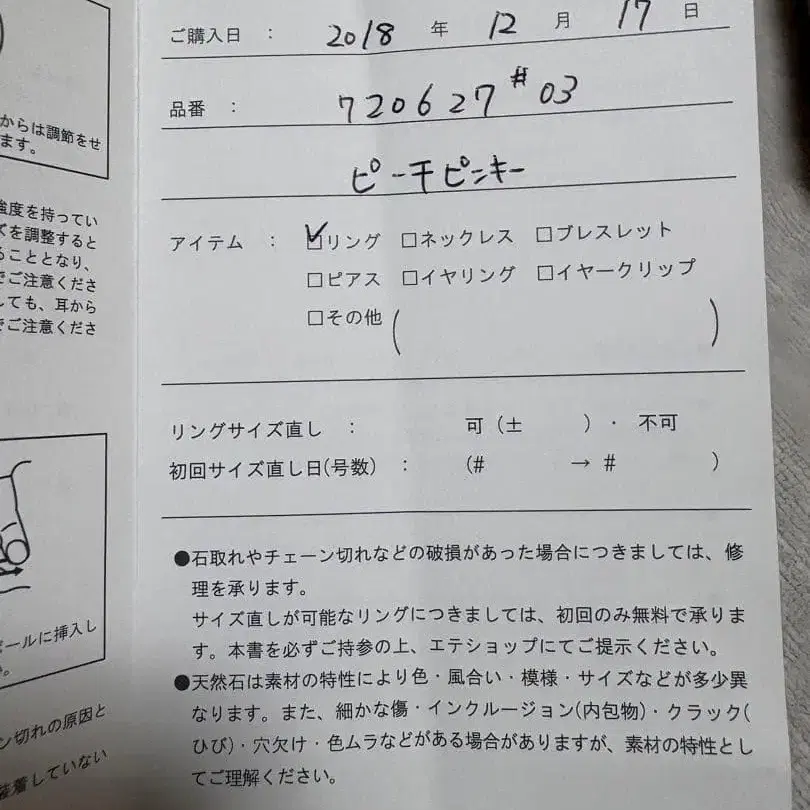 からは調節をせ
ます。
強度を持ってい
ズを調整すると
ることとなり、
でご注意くださ
しても、耳から
でご注意くださ
ールに挿入し
ン切れの原因と
装着していない
ご購入日 : 2018 年 12 月 17 日
品番 : 720627 #03
ピーチピンキー
アイテム : ☑リング □ネックレス □ブレスレット
□ピアス □イヤリング □イヤークリップ
□その他 ( )
リングサイズ直し : 可 (± )・ 不可
初回サイズ直し日(号数) : (# → # )
●石取れやチェーン切れなどの破損があった場合につきましては、修
理を承ります。
サイズ直しが可能なリングにつきましては、初回のみ無料で承りま
す。本書を必ずご持参の上、エテショップにてご提示ください。
●天然石は素材の特性により色・風合い・模様・サイズなどが多少異
なります。また、細かな傷・インクルージョン(内包物)・クラック(
ひび)・穴欠け・色ムラなどがある場合がありますが、素材の特性とし
てご理解ください。